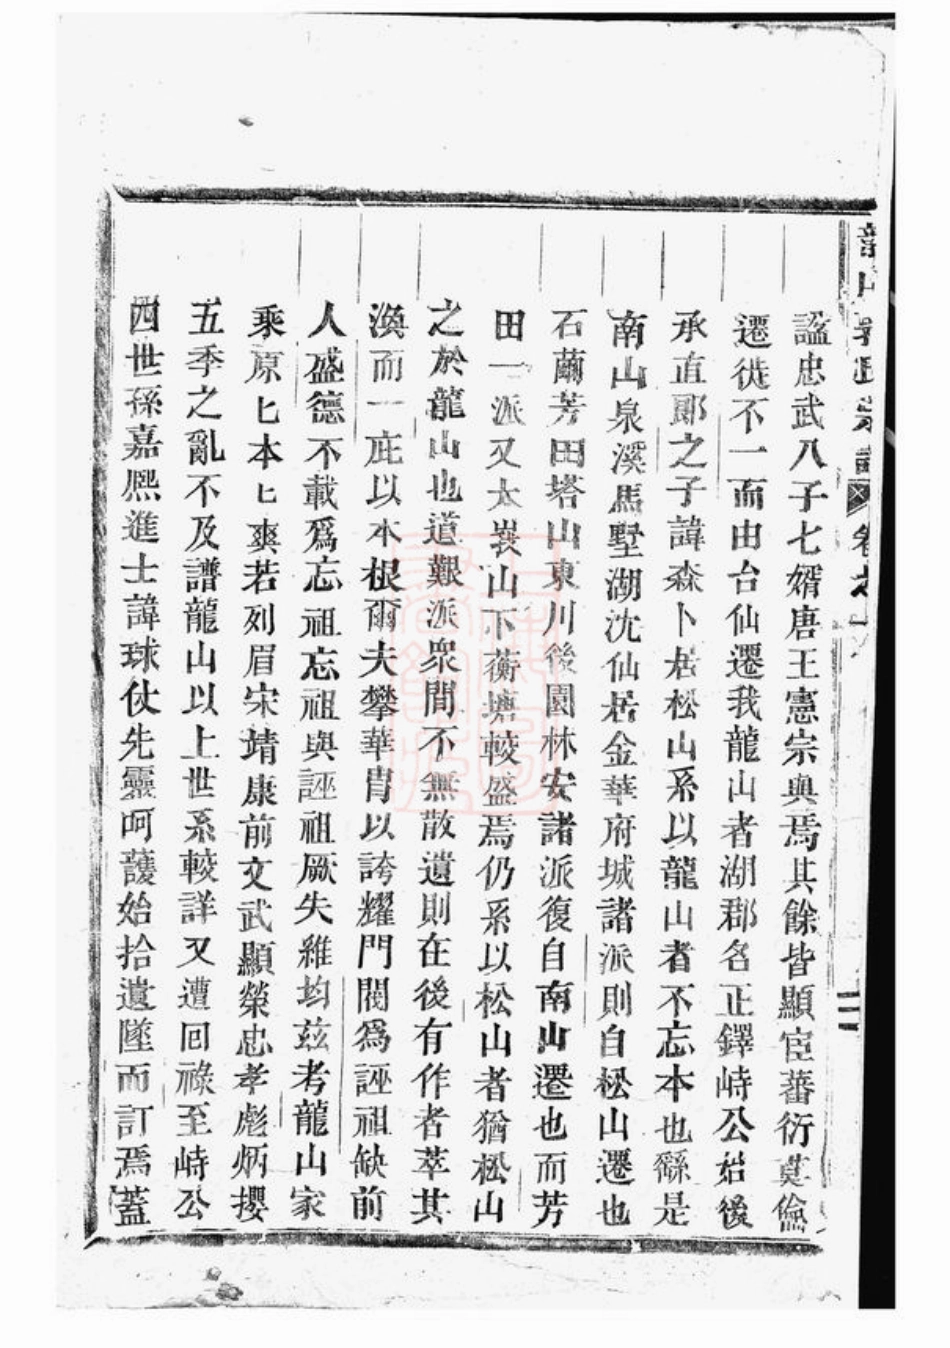 諡忠武八子七婿唐王憲宗與焉其餘皆顯宦蕃衍莫倫
遷徙不一而由台仙遷我龍山者湖郡名正鐸峙公始後
承直郎之子諱森卜居松山系以龍山者不忘本也繇是
南山泉溪馬墅湖沈仙居金華府城諸派則自松山遷也
石蘭芳田塔山東川後園林安諸派復自南山遷也而芳
田一派又太嶺山下蘅塘較盛焉仍系以松山者猶松山
之於龍山也道艱派衆間不無散遺則在後有作者萃其
渙而一庇以本根爾夫攀華胄以誇耀門閥爲誣祖缺前
人盛德不載爲忘祖忘祖與誣祖厥失雖均茲考龍山家
乘原匕本匕爽若列眉宋靖康前文武顯榮忠孝彪炳攖
五季之亂不及譜龍山以上世系較詳又遭回祿至峙公
四世孫嘉熙進士諱球仗先靈呵護始拾遺墜而訂焉蓋